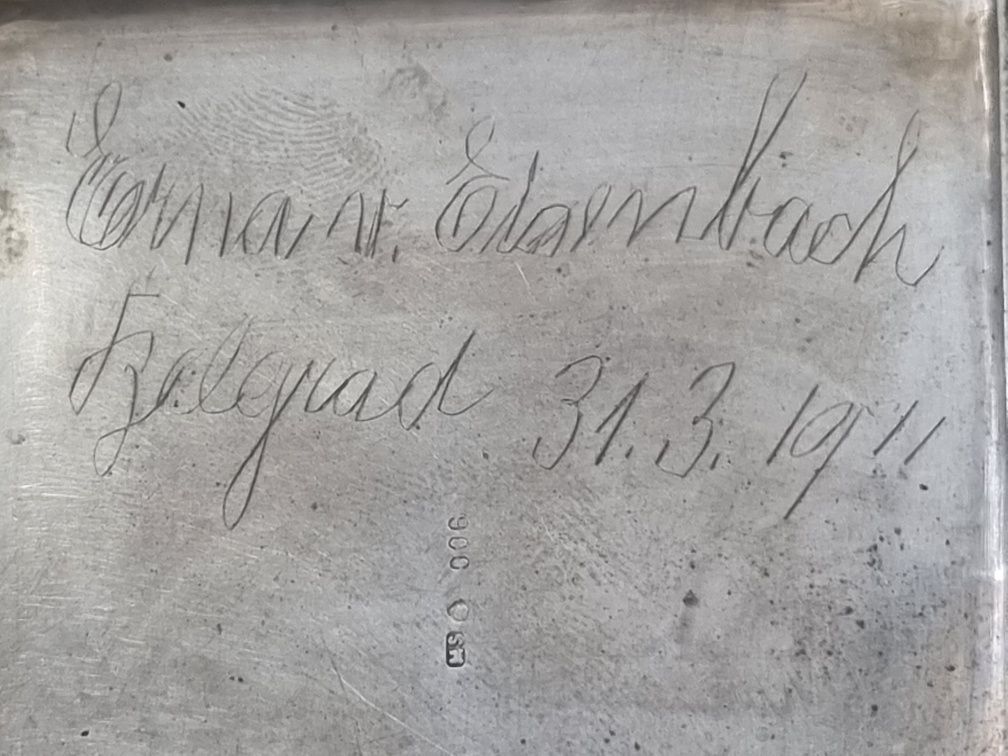 Erna v. Eisenbach
Belgrad 31.3.1911
900